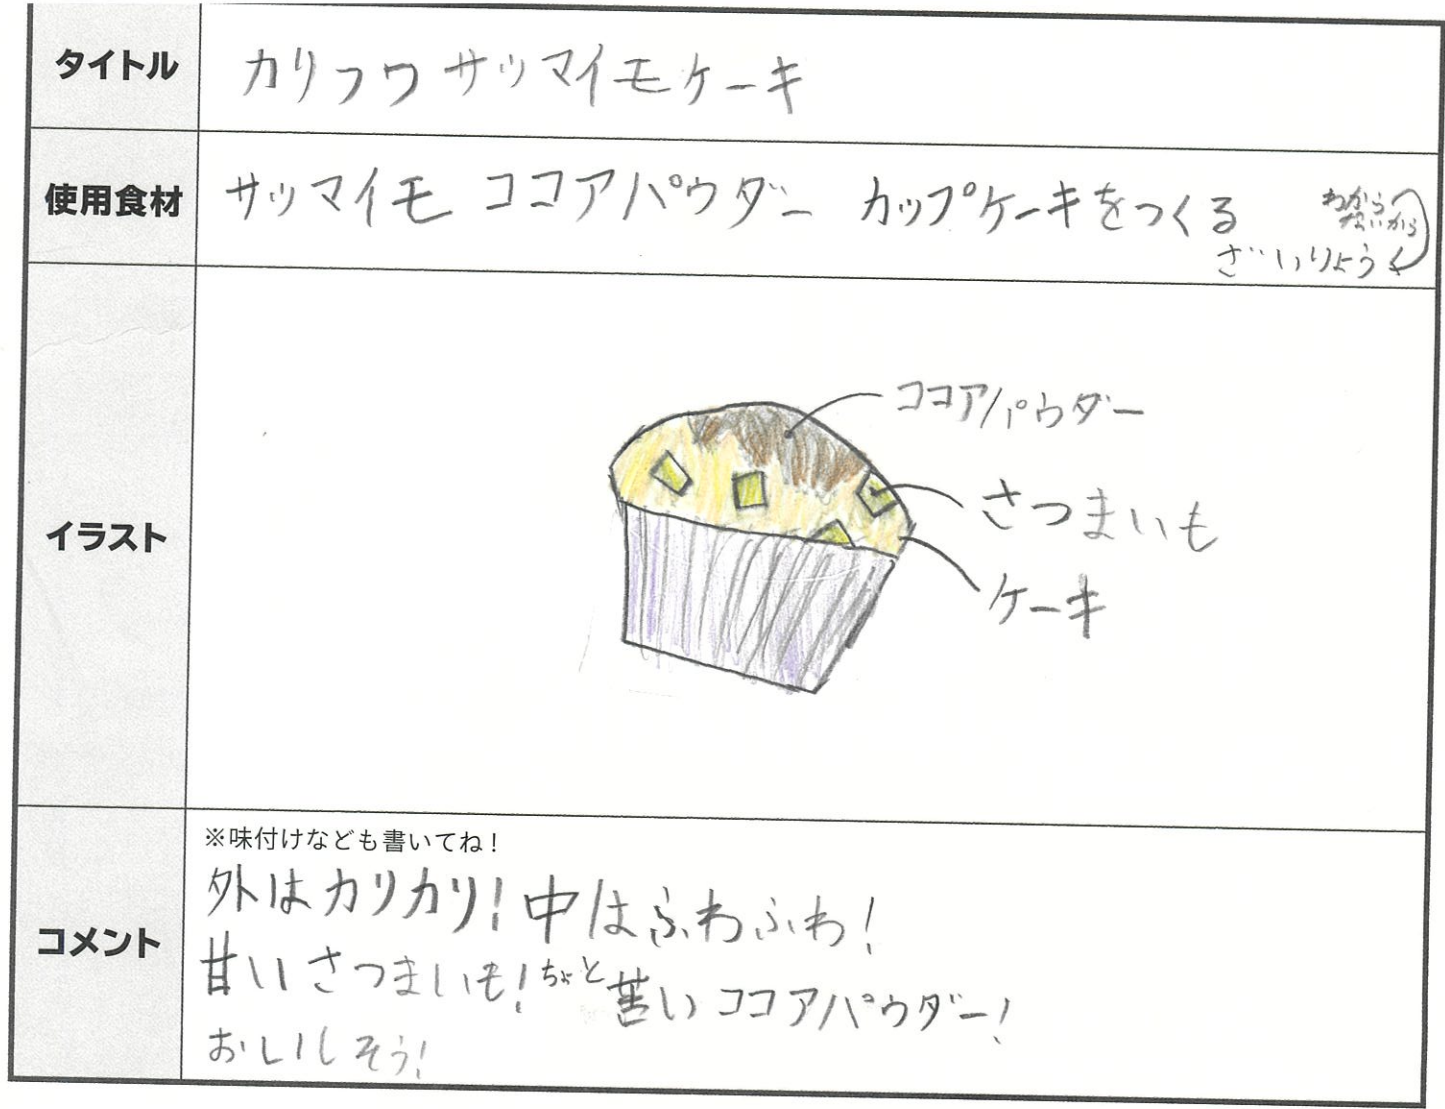 タイトル
カリフワサツマイモケーキ
使用食材
サツマイモ ココアパウダー カップケーキをつくる
ざいりょう
わから
ないから
イラスト
ココアパウダー
さつまいも
ケーキ
コメント
※味付けなども書いてね！
外はカリカリ！中はふわふわ！
甘いさつまいも！ちょと苦いココアパウダー！
おいしそう！